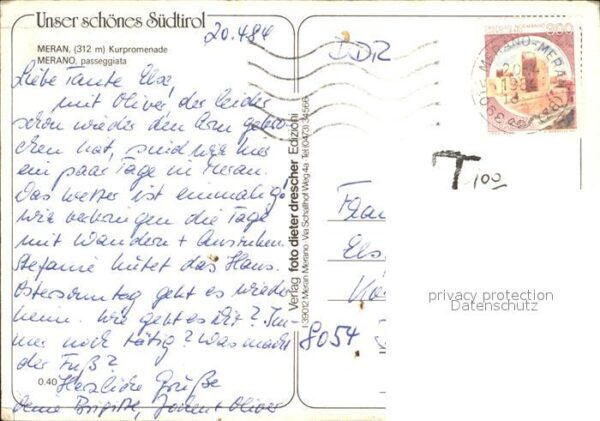 Unser schönes Südtirol
MERAN, (312 m) Kurpromenade
MERANO, passeggiata
20.4.84
DDR
Liebe Tante Else,
mit Oliver, der leider
schon wieder den Arm gebro-
chen hat, sind wir hier
ein paar Tage in Meran.
Das Wetter ist einmalig
wir verbringen die Tage
mit Wandern + Ausruhen.
Stefanie hütet das Haus.
Ostersonntag geht es wieder
heim. Wie geht es Dir? Im-
mer noch tätig? Was macht
der Fuß?
Herzliche Grüße
Deine Brigitte, Jochen + Oliver
0.40
Verlag foto dieter drescher Edizioni
I-39012 Meran Merano Via Schallhof Weg 4a Tel (0473) 34566
MERANO-MERAN
T 100
Frau
Els
8054
privacy protection
Datenschutz